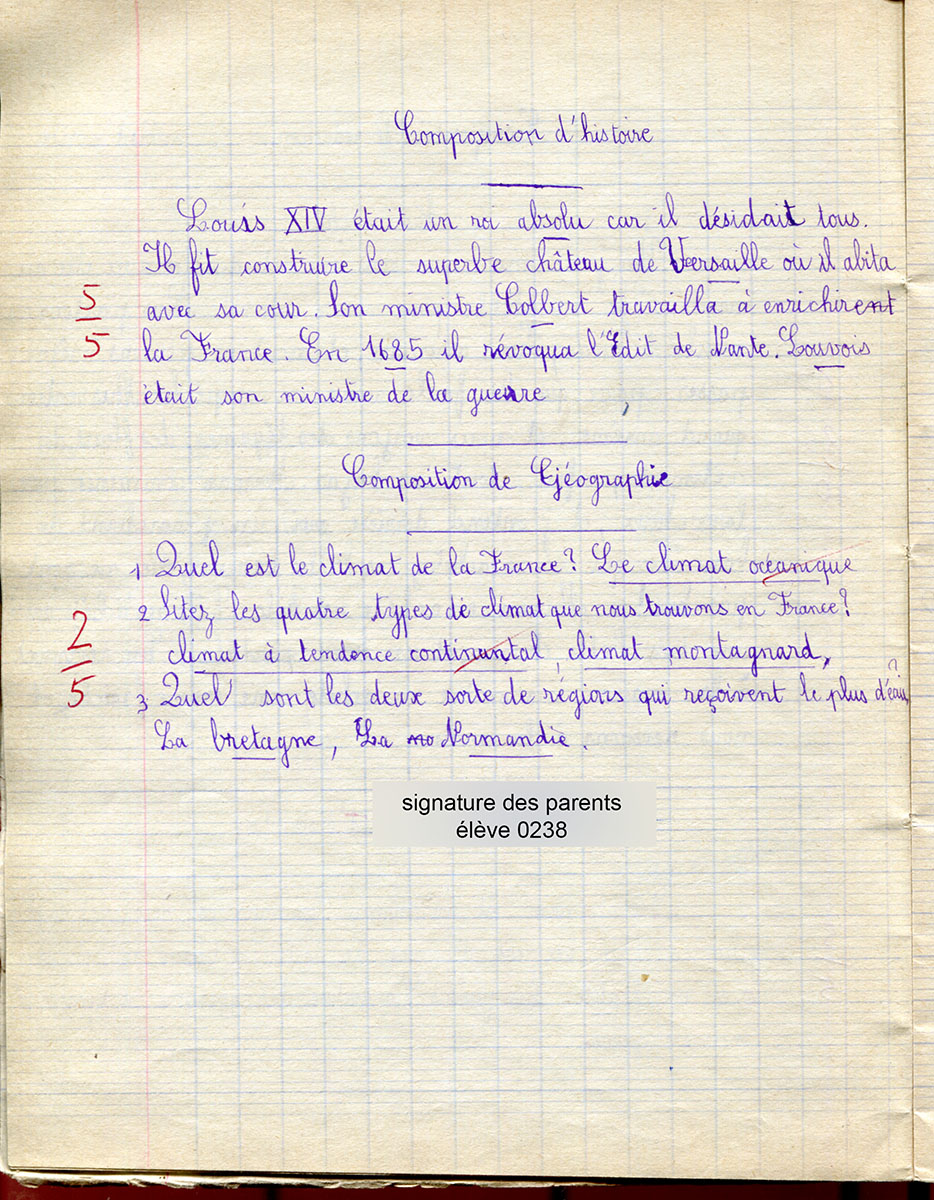 Composition d'histoire
Louis XIV était un roi absolu car il désidait tous.
Il fit construire le superbe château de Versaille où il abita
avec sa cour. Son ministre Colbert travailla à enrichirent
5
5
la France. En 1685 il révoqua l'Edit de Nante. Louvois
était son ministre de la guerre
Composition de Géographie
1 Quel est le climat de la France? Le climat océanique
2 Sitez les quatre types de climat que nous trouvons en France?
2
5
climat à tendence continental, climat montagnard,
3 Quel sont les deux sorte de régions qui reçoivent le plus d'eau?
La bretagne, La no Normandie.
signature des parents
élève 0238